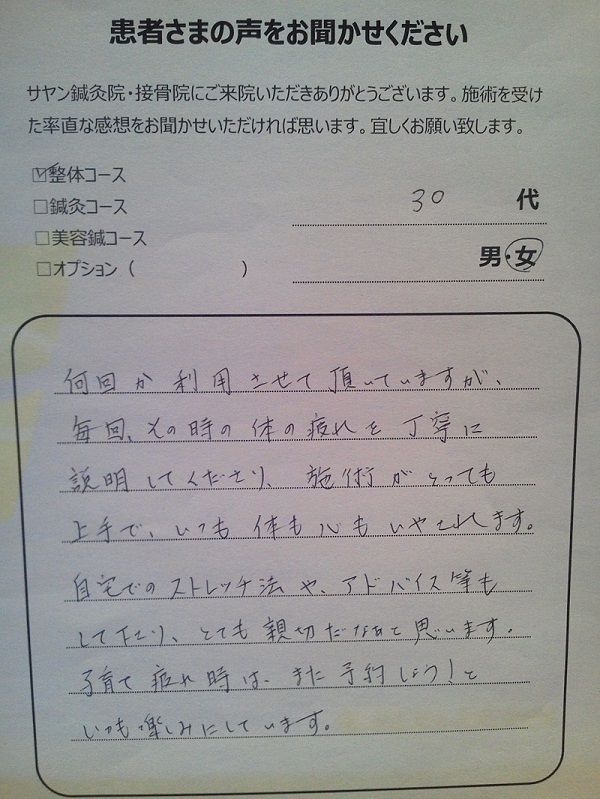 患者さまの声をお聞かせください
サヤン鍼灸院・接骨院にご来院いただきありがとうございます。施術を受け
た率直な感想をお聞かせいただければ思います。宜しくお願い致します。
☑整体コース
□鍼灸コース
30 代
□美容鍼コース
男・女
□オプション（ ）
何回か利用させて頂いていますが、
毎回、その時の体の疲れを丁寧に
説明してくださり、施術がとっても
上手で、いつも体も心もいやされます。
自宅でのストレッチ法や、アドバイス等も
して下さり、とても親切だなあと思います。
子育て疲れ時は、また予約しよう!と
いつも楽しみにしています。